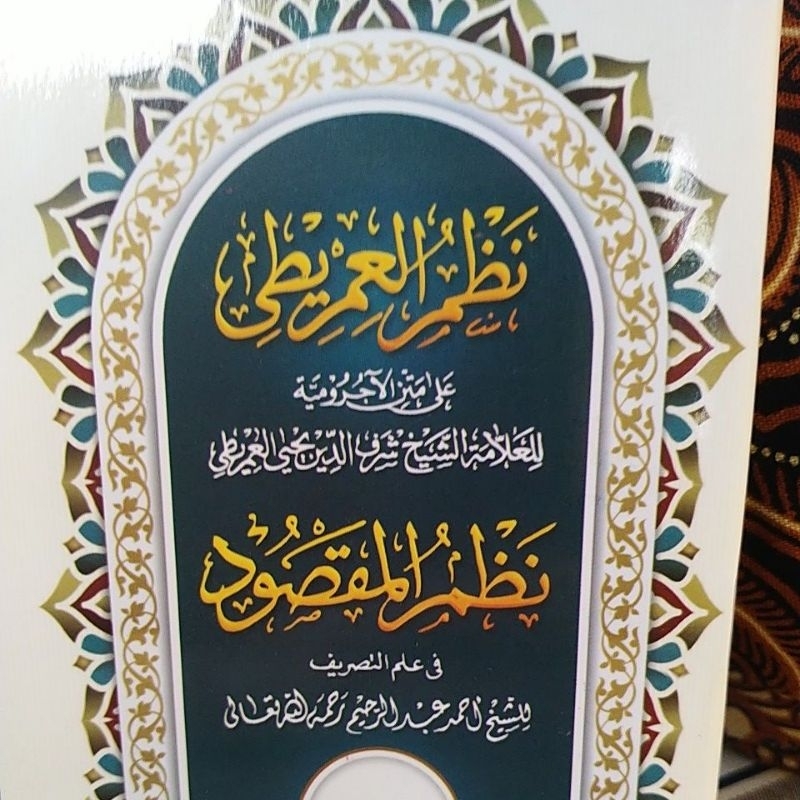 نَظْمُ الْعِمْرِيْطِي
عَلَى مَتْنِ الْآجُرُومِيَّة
لِلعَلَّامَة الشَّيْخ شَرَف الدِّين يَحْيَى العِمْرِيطِي
نَظْمُ الْمَقْصُوْد
فى علم التصريف
لِلشَّيْخِ أحمد عَبْد الرَّحِيم رَحِمَهُ اللهُ تَعَالَى